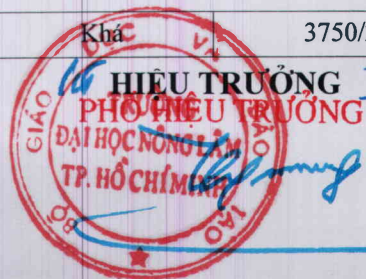 Khá 3750/
HIỆU TRƯỞNG
PHÓ HIỆU TRƯỞNG
BỘ GIÁO DỤC VÀ ĐÀO TẠO
TRƯỜNG
ĐẠI HỌC NÔNG LÂM
TP. HỒ CHÍ MINH